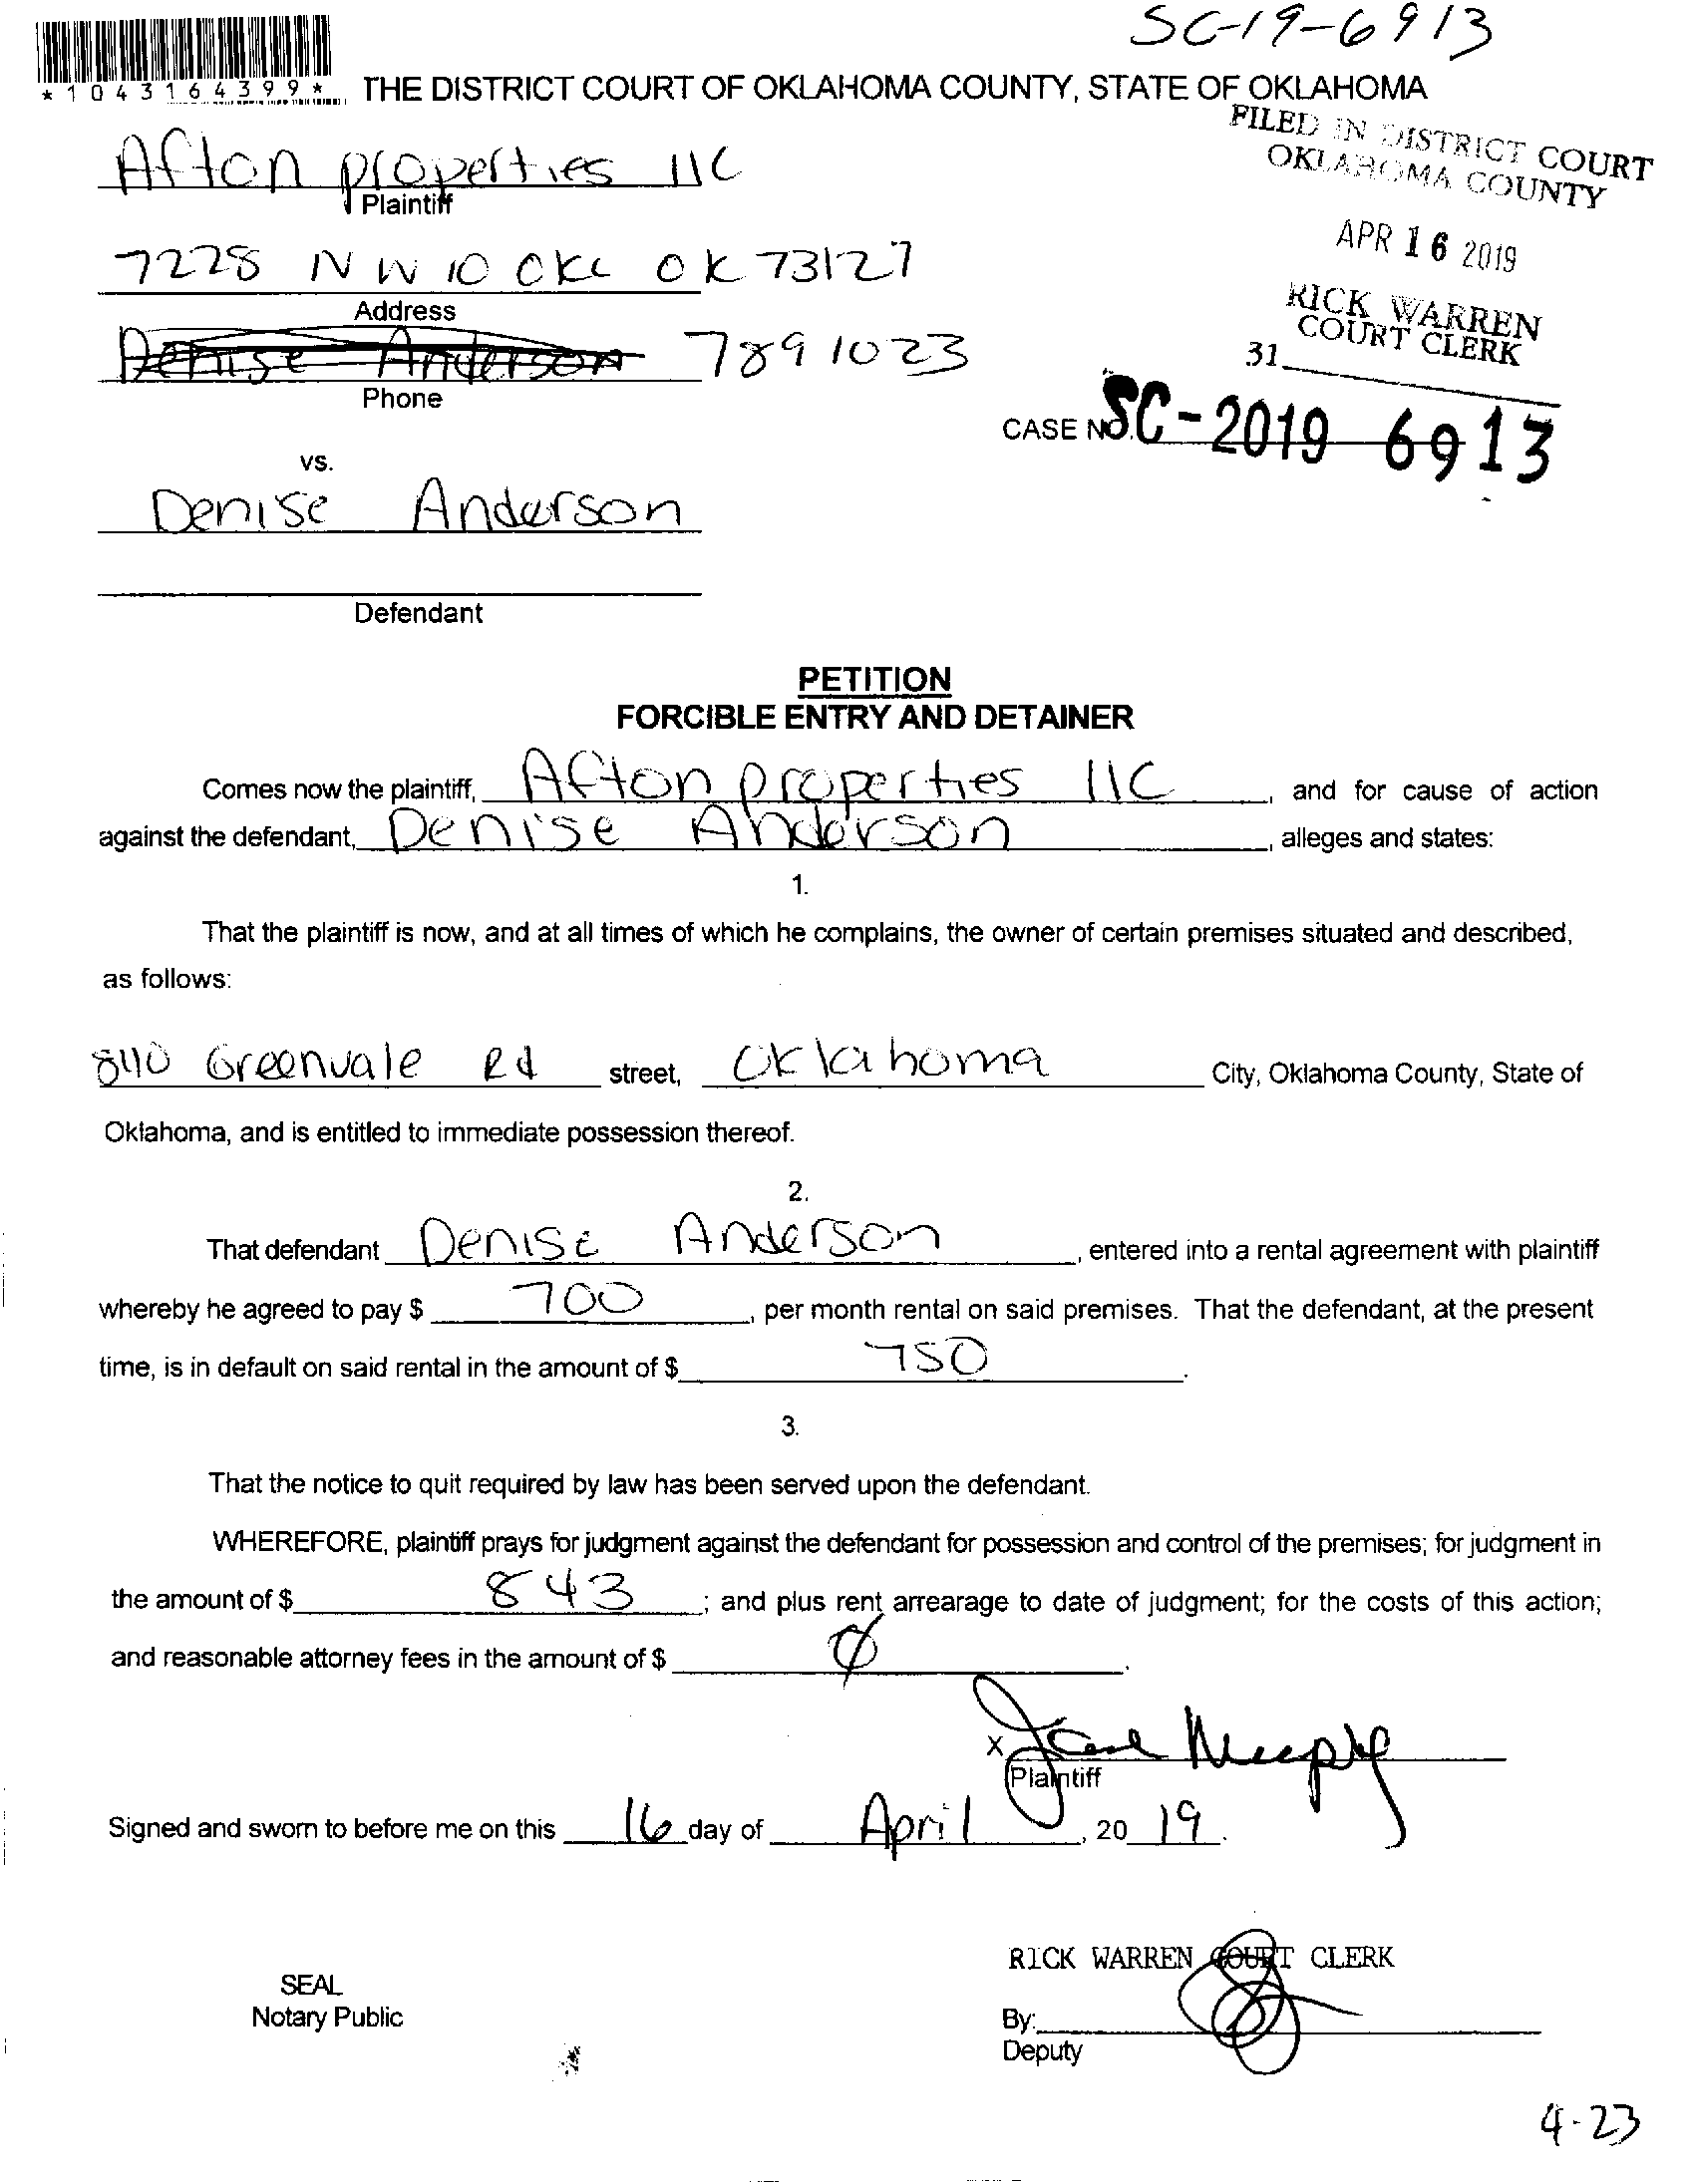 SC-19-6913
*1043164399*
THE DISTRICT COURT OF OKLAHOMA COUNTY, STATE OF OKLAHOMA
FILED IN DISTRICT COURT
OKLAHOMA COUNTY
Afton properties llC
Plaintiff
APR 16 2019
7228 NW 10 OKC OK 73127
Address
RICK WARREN
COURT CLERK
31
Denise Anderson 789 1023
Phone
CASE NO. SC-2019 6913
vs.
Denise Anderson
Defendant
PETITION
FORCIBLE ENTRY AND DETAINER
Comes now the plaintiff, Afton properties llC, and for cause of action
against the defendant, Denise Anderson, alleges and states:
1.
That the plaintiff is now, and at all times of which he complains, the owner of certain premises situated and described,
as follows:
8110 Greenvale Rd street, Oklahoma City, Oklahoma County, State of
Oklahoma, and is entitled to immediate possession thereof.
2.
That defendant Denise Anderson, entered into a rental agreement with plaintiff
whereby he agreed to pay $ 700, per month rental on said premises. That the defendant, at the present
time, is in default on said rental in the amount of $ 750.
3.
That the notice to quit required by law has been served upon the defendant.
WHEREFORE, plaintiff prays for judgment against the defendant for possession and control of the premises; for judgment in
the amount of $ 843; and plus rent arrearage to date of judgment; for the costs of this action;
and reasonable attorney fees in the amount of $ 0.
X
Plaintiff
Signed and sworn to before me on this 16 day of April, 2019.
RICK WARREN COURT CLERK
SEAL
Notary Public
By:
Deputy
4-23